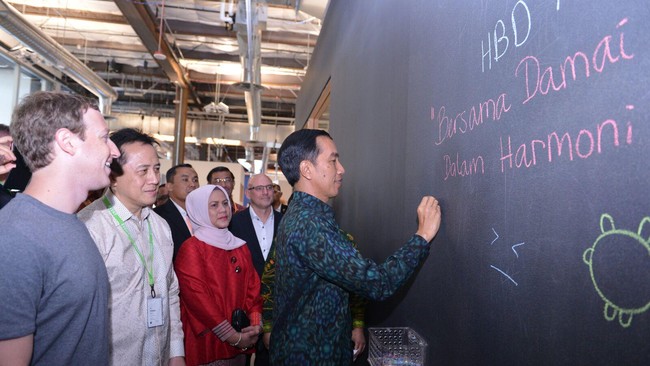 HBD
"Bersama Damai
Dalam Harmoni